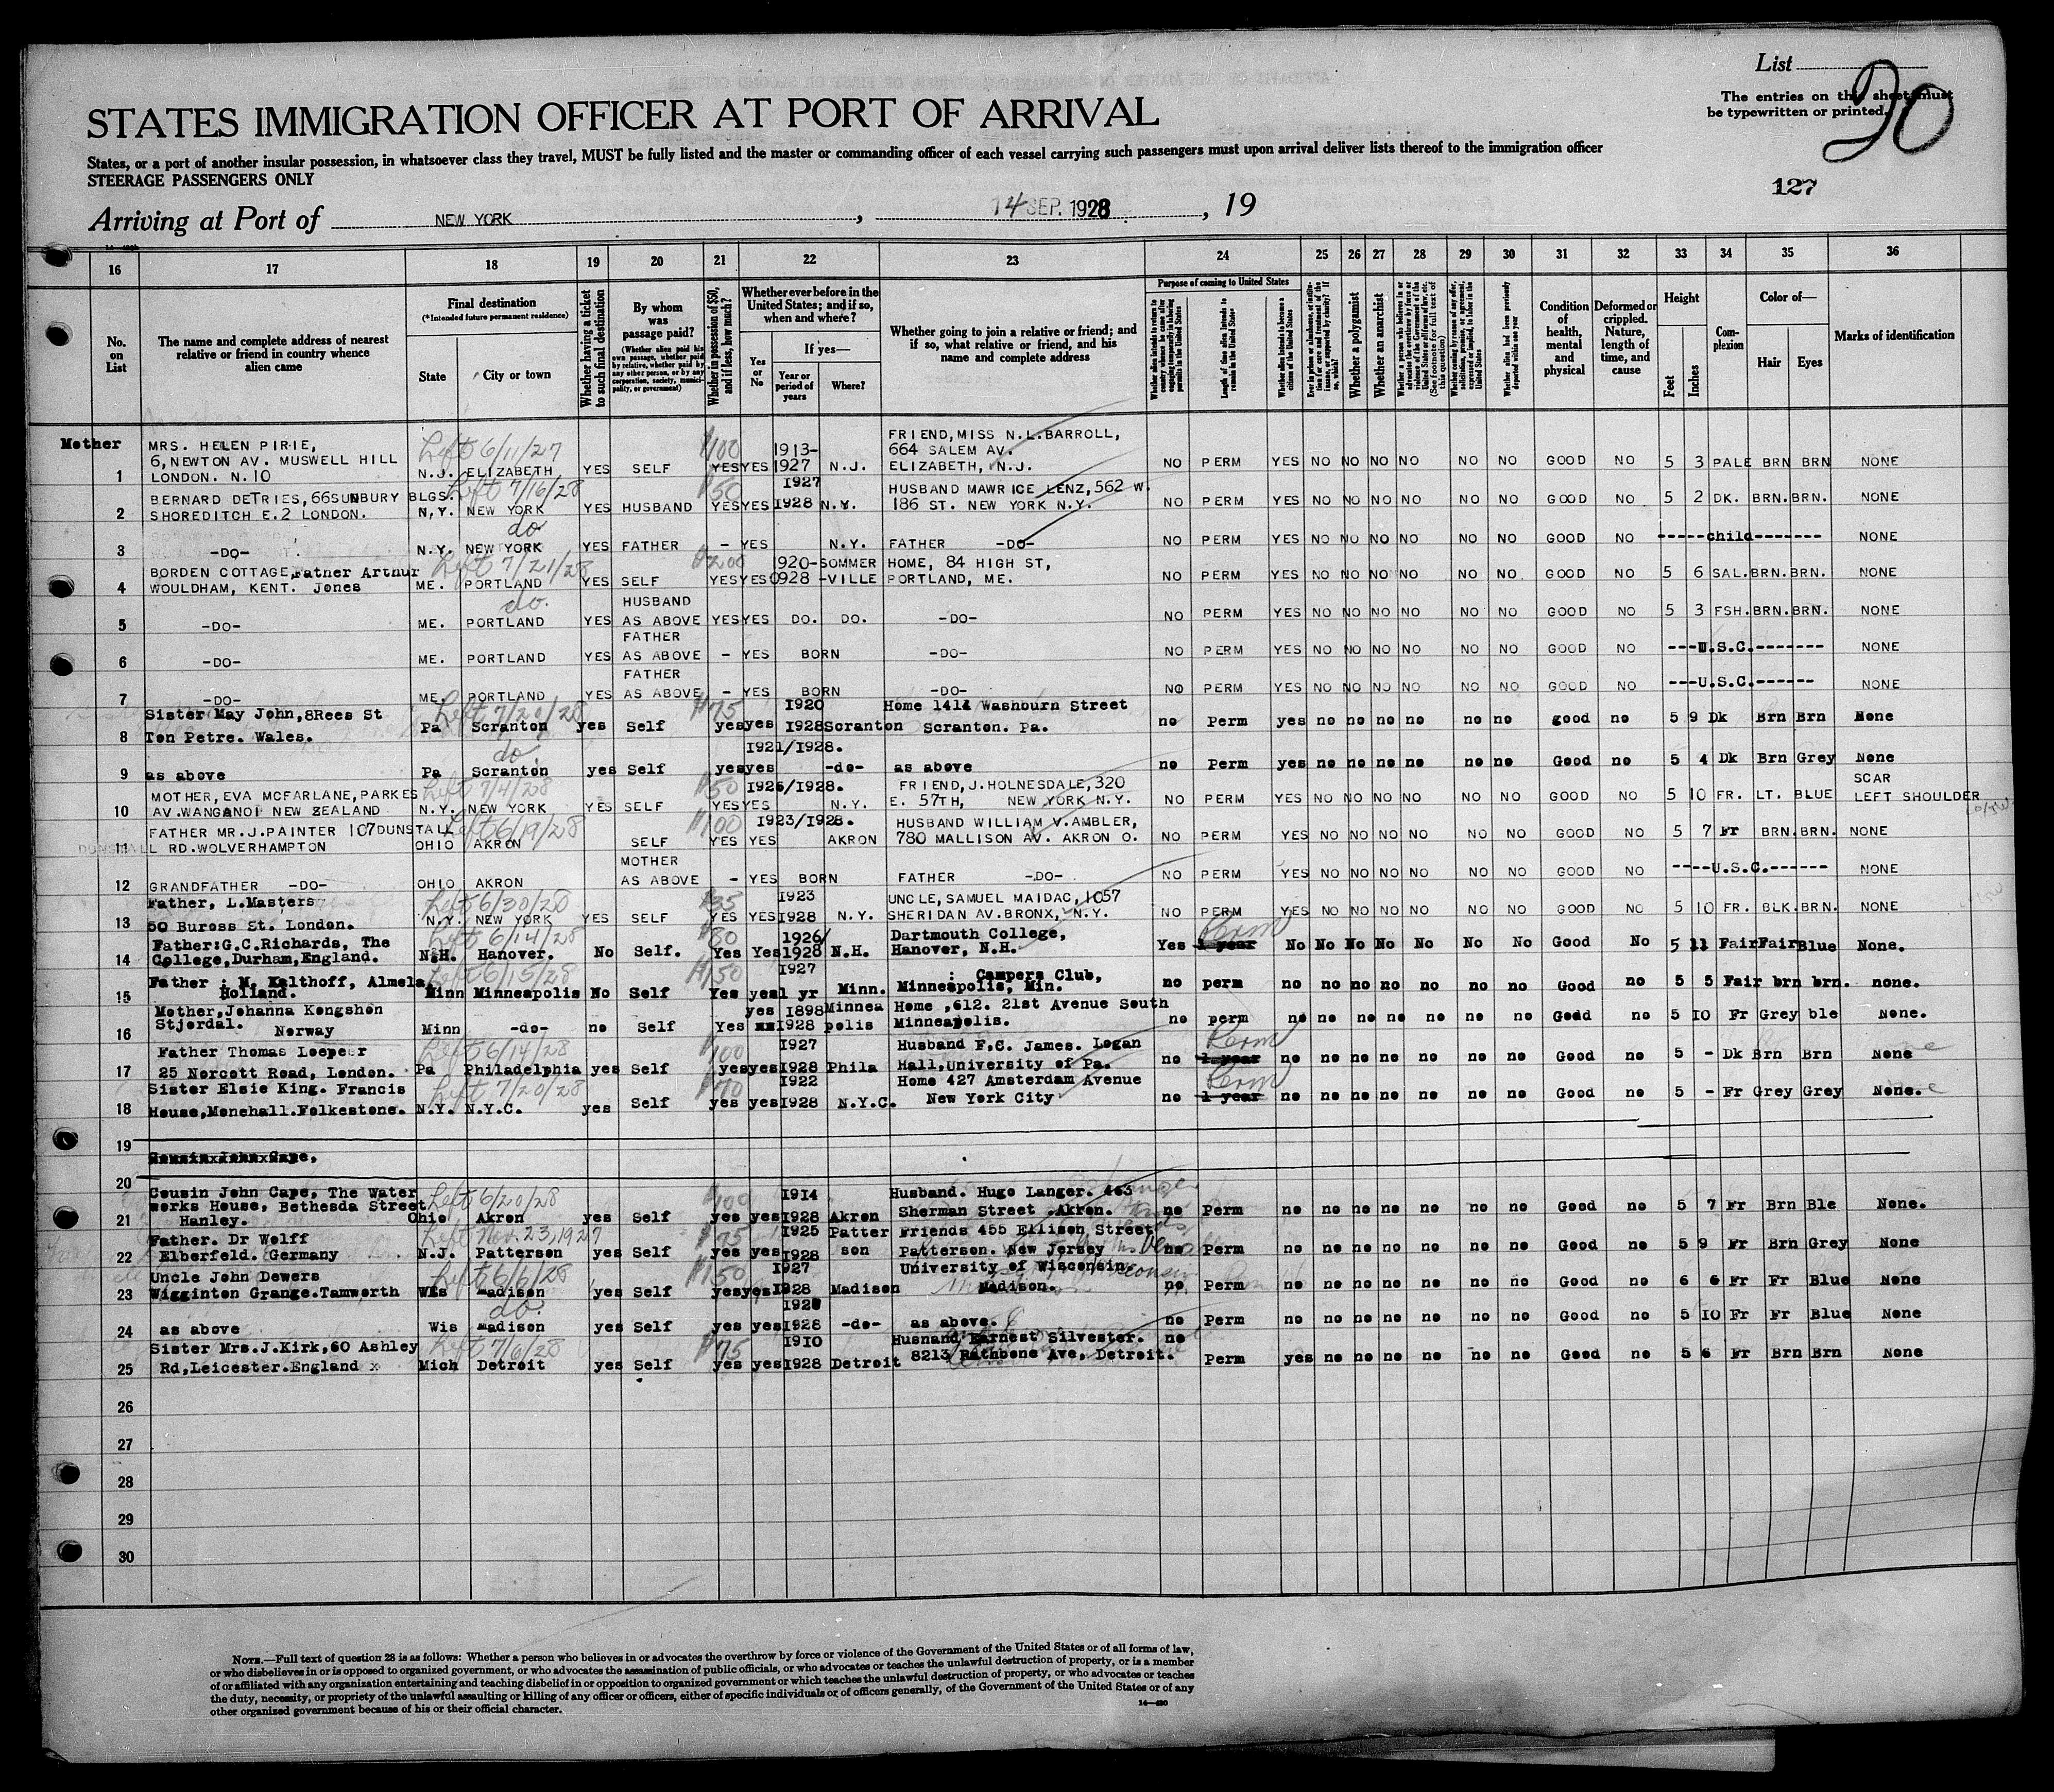 List
20
The entries on this sheet must
be typewritten or printed.
STATES IMMIGRATION OFFICER AT PORT OF ARRIVAL
States, or a port of another insular possession, in whatsoever class they travel, MUST be fully listed and the master or commanding officer of each vessel carrying such passengers must upon arrival deliver lists thereof to the immigration officer
STEERAGE PASSENGERS ONLY
127
Arriving at Port of NEW YORK, 14 SEP. 1928, 19
16 17 18 19 20 21 22 23 24 25 26 27 28 29 30 31 32 33 34 35 36
No. on List
The name and complete address of nearest relative or friend in country whence alien came
Final destination
(*Intended future permanent residence)
State
City or town
Whether having a ticket to such final destination
By whom was passage paid?
(Whether alien paid his own passage, whether paid by relative, whether paid by any other person, or by any corporation, society, municipality, or government)
Whether in possession of $50, and if less, how much?
Whether ever before in the United States; and if so, when and where?
Yes or No
If yes—
Year or period of years
Where?
Whether going to join a relative or friend; and if so, what relative or friend, and his name and complete address
Purpose of coming to United States
Length of time alien intends to remain in the United States
Whether alien intends to become a citizen of the United States
Whether a polygamist
Whether an anarchist
Condition of health, mental and physical
Deformed or crippled. Nature, length of time, and cause
Height
Feet
Inches
Complexion
Color of—
Hair
Eyes
Marks of identification
Mother
MRS. HELEN PIRIE, Left 6/11/27 $100 1913- FRIEND, MISS N.L.BARROLL,
6, NEWTON AV. MUSWELL HILL 664 SALEM AV.
1 LONDON. N.10 N.J. ELIZABETH YES SELF YES YES 1927 N.J. ELIZABETH, N.J. NO PERM YES NO NO NO NO NO NO GOOD NO 5 3 PALE BRN BRN NONE
BERNARD DETRIES, 66SUNBURY BLGS. Left 7/16/28 $50 1927 HUSBAND MAWRICE LENZ, 562 W.
2 SHOREDITCH E.2 LONDON. N.Y. NEW YORK YES HUSBAND YES YES 1928 N.Y. 186 ST. NEW YORK N.Y. NO PERM YES NO NO NO NO NO NO GOOD NO 5 2 DK. BRN. BRN. NONE
do
3 -DO- N.Y. NEW YORK YES FATHER - YES N.Y. FATHER -DO- NO PERM YES NO NO NO NO NO NO GOOD NO -----child------- NONE
BORDEN COTTAGE, Father Arthur Left 7/21/28 $200 1920- SOMMER HOME, 84 HIGH ST,
4 WOULDHAM, KENT. Jones ME. PORTLAND YES SELF YES YES 1928 -VILLE PORTLAND, ME. NO PERM YES NO NO NO NO NO NO GOOD NO 5 6 SAL. BRN. BRN. NONE
do. HUSBAND
5 -DO- ME. PORTLAND YES AS ABOVE YES YES DO. DO. -DO- NO PERM YES NO NO NO NO NO NO GOOD NO 5 3 FSH. BRN. BRN. NONE
FATHER
6 -DO- ME. PORTLAND YES AS ABOVE - YES BORN -DO- NO PERM YES NO NO NO NO NO NO GOOD NO ---U.S.C.------- NONE
FATHER
7 -DO- ME. PORTLAND YES AS ABOVE - YES BORN -DO- NO PERM YES NO NO NO NO NO NO GOOD NO ---U.S.C.------ NONE
Sister May John, 8Rees St Left 7/20/28 $75 1920 Home 1414 Washburn Street
8 Ton Petre. Wales. Pa Scranton yes Self yes yes 1928 Scranton Scranton. Pa. no Perm yes no no no no no no good no 5 9 Dk Brn Brn None
do. 1921/1928.
9 as above Pa Scranton yes Self yes yes -do- as above no Perm yes no no no no no no Good no 5 4 Dk Brn Grey None
MOTHER, EVA MCFARLANE, PARKES Left 7/4/28 $50 1926/1928. FRIEND, J. HOLNESDALE, 320 SCAR
10 AV. WANGANOI NEW ZEALAND N.Y. NEW YORK YES SELF YES YES N.Y. E. 57TH, NEW YORK N.Y. NO PERM YES NO NO NO NO NO NO GOOD NO 5 10 FR. LT. BLUE LEFT SHOULDER
FATHER MR. J. PAINTER 107 DUNSTALL Left 6/19/28 $100 1923/1928. HUSBAND WILLIAM V. AMBLER,
11 L RD. WOLVERHAMPTON OHIO AKRON SELF YES YES AKRON 780 MALLISON AV. AKRON O. NO PERM YES NO NO NO NO NO NO GOOD NO 5 7 Fr BRN. BRN. NONE
MOTHER
12 GRANDFATHER -DO- OHIO AKRON AS ABOVE - YES BORN FATHER -DO- NO PERM YES NO NO NO NO NO NO GOOD NO ----U.S.C.------ NONE
Father, L. Masters Left 6/30/28 $35 1923 UNCLE, SAMUEL MAIDAC, 1057
13 50 Buross St. London. N.Y. NEW YORK YES SELF YES YES 1928 N.Y. SHERIDAN AV. BRONX, N.Y. NO PERM YES NO NO NO NO NO NO GOOD NO 5 10 FR. BLK. BRN. NONE
Father: G.C. Richards, The Left 6/14/28 $80 1926/ Dartmouth College, Perm
14 College, Durham, England. N.H. Hanover. No Self. Yes Yes 1928 N.H. Hanover, N.H. Yes 1 year No No No No No No No Good No 5 11 Fair Fair Blue None.
Father : M. Kalthoff, Almelo, Left 6/15/28 $150 1927 : Campers Club,
15 Holland. Minn Minneapolis No Self Yes yes 1 yr Minn. Minneapolis, Min. no perm no no no no no no no Good no 5 5 Fair brn brn. none.
Mother, Johanna Kongshon yes 1898 Minnea Home, 612. 21st Avenue South
Stjordal.
16 Norway Minn -do- no Self Yes 1928 polis Minneapolis. no perm no no no no no no no Good no 5 10 Fr Grey ble None.
Father Thomas Loepeer Left 6/14/28 $100 1927 Husband F.C. James. Logan Perm
17 25 Norcott Road, London. Pa Philadelphia yes Self yes yes 1928 Phila Hall, University of Pa. no 1 year no no no no no no no Good no 5 - Dk Brn Brn None
Sister Elsie King. Francis Left 7/20/28 $70 1922 Home 427 Amsterdam Avenue Perm
18 House, Monehall. Folkestone. N.Y. N.Y.C. yes Self yes yes 1928 N.Y.C. New York City no 1 year no no no no no no no Good no 5 - Fr Grey Grey None.
19
Cousin John Cape,
20
Cousin John Cape, The Water Left 6/20/28 $100 1914 Husband. Hugo Langer. 463
works House, Bethesda Street
21 Hanley. Ohio Akron yes Self yes yes 1928 Akron Sherman Street. Akron. no Perm no no no no no no no Good no 5 7 Fr Brn Ble None.
Father. Dr Wolff Left Nov 23, 1927 $75 1925 Patter Friends 455 Ellison Street
22 Elberfeld. Germany N.J. Patterson yes Self yes yes 1928 son Patterson. New Jersey no Perm no no no no no no no Good no 5 9 Fr Brn Grey None
Uncle John Dewers Left 6/6/28 $150 1927 University of Wisconsin.
23 Wigginton Grange. Tamworth Wis Madison yes Self yes yes 1928 Madison Madison. no Perm no no no no no no no Good no 6 6 Fr Fr Blue None
do.
24 as above Wis Madison yes Self yes yes 1928 -do- as above. no Perm no no no no no no no Good no 5 10 Fr Fr Blue None
Sister Mrs. J. Kirk, 60 Ashley Left 7/6/28 $75 1910 Husnand Earnest Silvester. no
25 Rd, Leicester. England x Mich Detroit yes Self yes yes 1928 Detroit 8213 Rathbone Ave, Detroit. Perm yes no no no no no no Good no 5 6 Fr Brn Brn None
26
27
28
29
30
NOTE.—Full text of question 28 is as follows: Whether a person who believes in or advocates the overthrow by force or violence of the Government of the United States or of all forms of law,
or who disbelieves in or is opposed to organized government, or who advocates the assassination of public officials, or who advocates or teaches the unlawful destruction of property, or is a member
of or affiliated with any organization entertaining and teaching disbelief in or opposition to organized government or which teaches the unlawful destruction of property, or who advocates or teaches
the duty, necessity, or propriety of the unlawful assaulting or killing of any officer or officers, either of specific individuals or of officers generally, of the Government of the United States or of any
other organized government because of his or their official character.
14—430